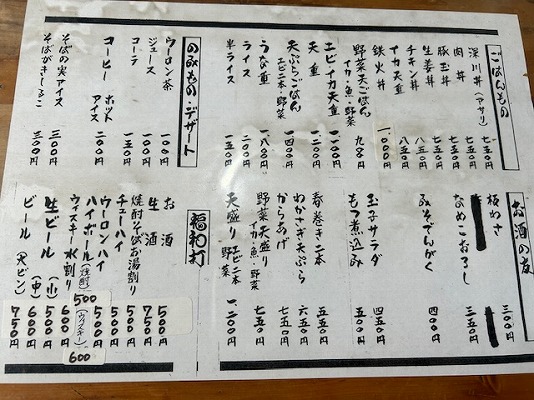 ごはんもの
深川丼(アサリ) 七五〇円
肉丼 七五〇円
豚玉丼 七五〇円
生姜丼 七五〇円
チキン丼 八五〇円
イカ天丼 八五〇円
鉄火丼 一,〇〇〇円
野菜天ごはん イカ・魚・野菜
エビイカ天重 一,二〇〇円
天重 一,一〇〇円
天ぷらごはん エビ二本・野菜 一,四〇〇円
うな重 一,八〇〇円
ライス 二〇〇円
半ライス 一五〇円
のみもの・デザート
ウーロン茶 一〇〇円
ジュース 一〇〇円
コーラ 一五〇円
コーヒー ホット アイス 二〇〇円
そばの実アイス 三〇〇円
そばがきしるこ 三〇〇円
お酒の友
板わさ 三〇〇円
なめこおろし 三五〇円
みそでんがく 四〇〇円
玉子サラダ 四五〇円
もつ煮込み 五五〇円
春巻き二本 五五〇円
わかさぎ天ぷら 六五〇円
からあげ 七五〇円
野菜天盛り イカ・魚・野菜 七五〇円
天盛り エビ二本 野菜 一,二〇〇円
福和打
お酒 500円
生酒 750円
焼酎そばお湯割り 500円
チューハイ 500円
ウーロンハイ 500円
ハイボール(焼酎) 500 (ウィスキー) 600
ウィスキー水割り 600円
生ビール (小) 500円
(中) 600円
ビール (大ビン) 750円